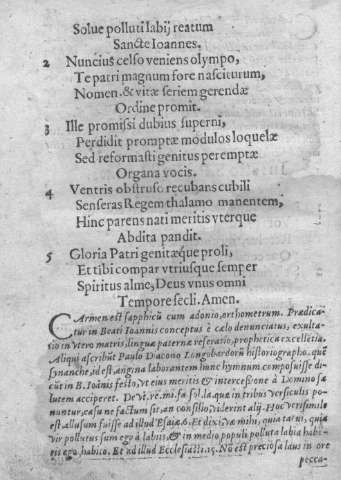 Solue polluti labij reatum
Sancte Ioannes.
2 Nuncius celso veniens olympo,
Te patri magnum fore nasciturum,
Nomen, & vitæ seriem gerendæ
Ordine promit.
3 Ille promissi dubius superni,
Perdidit promptæ modulos loquelæ
Sed reformasti genitus peremptæ
Organa vocis.
4 Ventris obstruso recubans cubili
Senseras Regem thalamo manentem,
Hinc parens nati meritis vterque
Abdita pandit.
5 Gloria Patri genitæque proli,
Et tibi compar vtriusque semper
Spiritus alme, Deus vnus omni
Tempore secli. Amen.
CArmen est sapphicũ cum adonio, arthometrum. Prædica-
tur in Beati Ioannis conceptus è cælo denunciatus, exulta-
tio in vtero matris, lingua paternæ referatio, prophetica excellẽtia.
Aliqui ascribũt Paulo Diacono Longobardorũ historiographo, quẽ
synanche, id est, angina laborantem hunc hymnum composuisse di-
cũt in B. Ioãnis festo, vt eius meritis & intercessione à Domino sa
lutem acciperet. De Vt. re. mi. fa. sol. la. quæ in tribus versiculis po-
nuntur, casu ne factum sit, an consilio, viderint alij. Hoc verisimile
est, allusum fuisse ad illud Esaiæ. 6. Et dixi, væ mihi, quia tacui, quia
vir pollutus sum ego à labiis, & in medio populi polluta labia habẽ-
tis ego habito. Et ad illud Ecclesiast. 15. Non est preciosa laus in ore
pecca-